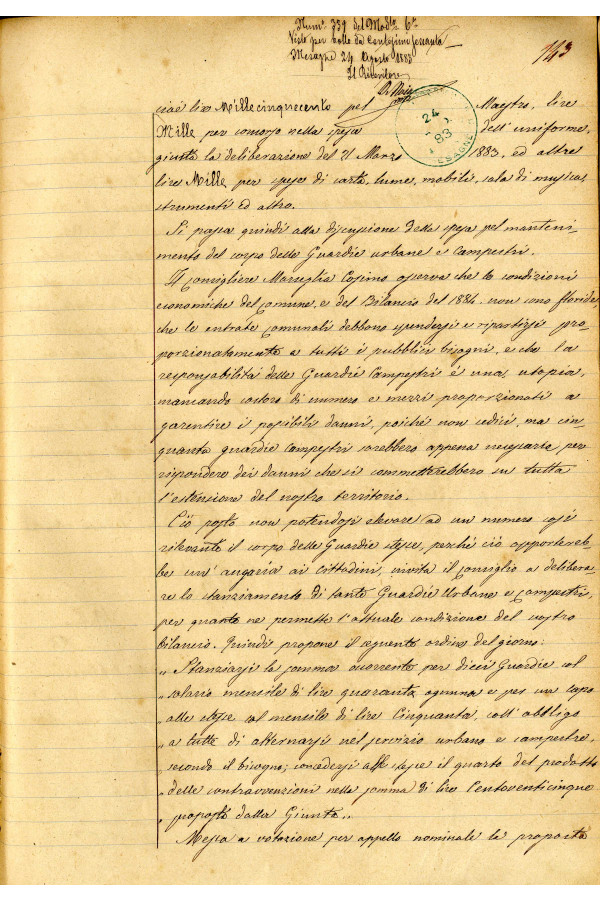 Num.º 359 del Mod.º 6º
Visto per bollo da Centesimi sessanta
Mesagne 24 Agosto 1883
Il Ricevitore
143
24
83
MESAGNE
cioè lire Millecinquecento pel Maestro, lire
Mille per concorso nella spesa dell'uniforme,
giusta la deliberazione del 21 Marzo 1883, ed altre
lire Mille per spese di carta, lume, mobili, sala di musica,
strumenti ed altro.
Si passa quindi alla discussione della spesa pel manteni-
mento del corpo delle Guardie urbane e campestri.
Il Consigliere Marseglia Cosimo osserva che le condizioni
economiche del Comune, e del Bilancio del 1884 non sono floride,
che le entrate comunali debbono spendersi e ripartirsi pro-
porzionatamente a tutti i pubblici bisogni, e che la
responsabilità delle Guardie Campestri è una utopia,
mancando costoro di numero e mezzi proporzionati a
garentire i possibili danni, poiché non sedici, ma cin-
quanta guardie campestri sarebbero appena necessarie per
rispondere dei danni che si commetterebbero su tutta
l'estensione del nostro territorio.
Ciò posto non potendosi elevare ad un numero così
rilevante il corpo delle Guardie stesse, perché ciò apportereb-
be un'angaria ai Cittadini, invita il Consiglio a delibera-
re lo stanziamento di tante Guardie Urbane e Campestri,
per quante ne permette l'attuale condizione del nostro
bilancio. Quindi propone il seguente ordine del giorno:
„ Stanziarsi la somma occorrente per dieci Guardie col
„ salario mensile di lire quaranta ognuna e per un capo
„ alle stesse col mensile di lire Cinquanta, coll'obbligo
„ a tutte di alternarsi nel servizio urbano e campestre,
„ secondo il bisogno; concedersi alle stesse il quarto del prodotto
„ delle contravvenzioni nella somma di lire Centoventicinque
„ proposta dalla Giunta „.
Messa a votazione per appello nominale la proposta